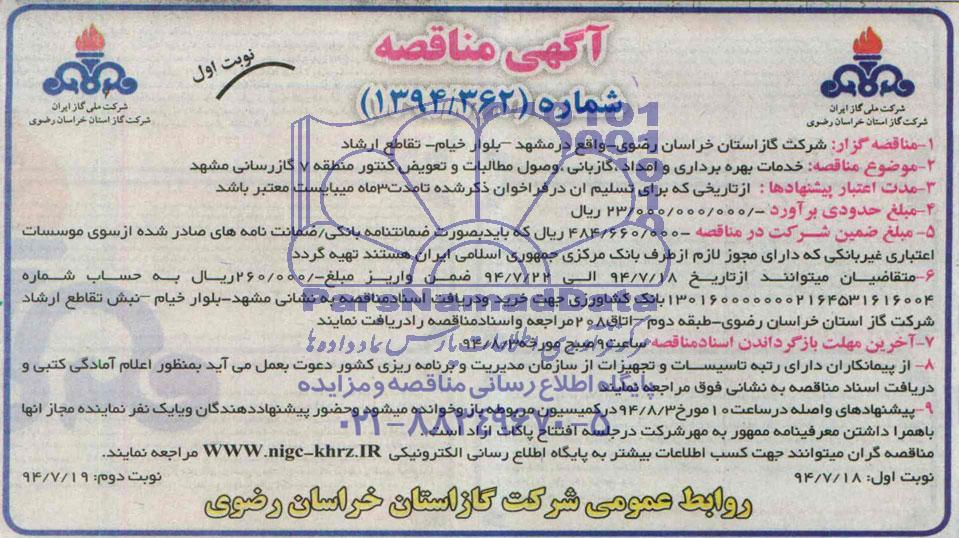 آگهی مناقصه
نوبت اول
شماره (۱۳۹۴/۳۶۲)
شرکت ملی گاز ایران
شرکت گاز استان خراسان رضوی
شرکت ملی گاز ایران
شرکت گاز استان خراسان رضوی
۱-مناقصه گزار: شرکت گازاستان خراسان رضوی-واقع درمشهد -بلوار خیام- تقاطع ارشاد
۲-موضوع مناقصه: خدمات بهره برداری و امداد ،گازبانی ،وصول مطالبات و تعویض کنتور منطقه ۷ گازرسانی مشهد
۳-مدت اعتبار پیشنهادها : ازتاریخی که برای تسلیم ان درفراخوان ذکرشده تامدت۳ماه میبایست معتبر باشد
۴-مبلغ حدودی برآورد -/۲۳/۰۰۰/۰۰۰/۰۰۰ ریال
۵- مبلغ ضمین شرکت در مناقصه -۴۸۴/۶۶۰/۰۰۰ ریال که بایدبصورت ضمانتنامه بانکی/ضمانت نامه های صادر شده ازسوی موسسات
اعتباری غیربانکی که دارای مجوز لازم ازطرف بانک مرکزی جمهوری اسلامی ایران هستند تهیه گردد
۶-متقاضیان میتوانند ازتاریخ ۹۴/۷/۱۸ الی ۹۴/۷/۲۲ ضمن واریز مبلغ-/۲۶۰/۰۰۰ریال به حساب شماره
۱۳۰۱۶۰۰۰۰۰۰۰۰۲۱۶۴۵۳۱۶۱۶۰۰۴بانک کشاورزی جهت خرید ودریافت اسنادمناقصه به نشانی مشهد-بلوار خیام -نبش تقاطع ارشاد
شرکت گاز استان خراسان رضوی-طبقه دوم -اتاق۲۰۸مراجعه واسنادمناقصه رادریافت نمایند
۷-آخرین مهلت بازگرداندن اسنادمناقصه ساعت۹صبح مورخه۹۴/۸/۳
۸- از پیمانکاران دارای رتبه تاسیسات و تجهیزات از سازمان مدیریت و برنامه ریزی کشور دعوت بعمل می آید بمنظور اعلام آمادگی کتبی و
دریافت اسناد مناقصه به نشانی فوق مراجعه نمایند
۹-پیشنهادهای واصله درساعت۱۰مورخ۹۴/۸/۳درکمیسیون مربوطه بازوخوانده میشود وحضور پیشنهاددهندگان ویایک نفر نماینده مجاز انها
باهمرا داشتن معرفینامه ممهور به مهرشرکت درجلسه افتتاح پاکات ازاد است.
مناقصه گران میتوانند جهت کسب اطلاعات بیشتر به پایگاه اطلاع رسانی الکترونیکی WWW.nigc-khrz.IR مراجعه نمایند.
نوبت اول: ۹۴/۷/۱۸
نوبت دوم: ۹۴/۷/۱۹
روابط عمومی شرکت گازاستان خراسان رضوی
ParsNamadData
پایگاه اطلاع رسانی مناقصه و مزایده
۰۲۱-۸۸۳۴۹۶۷۰-۵